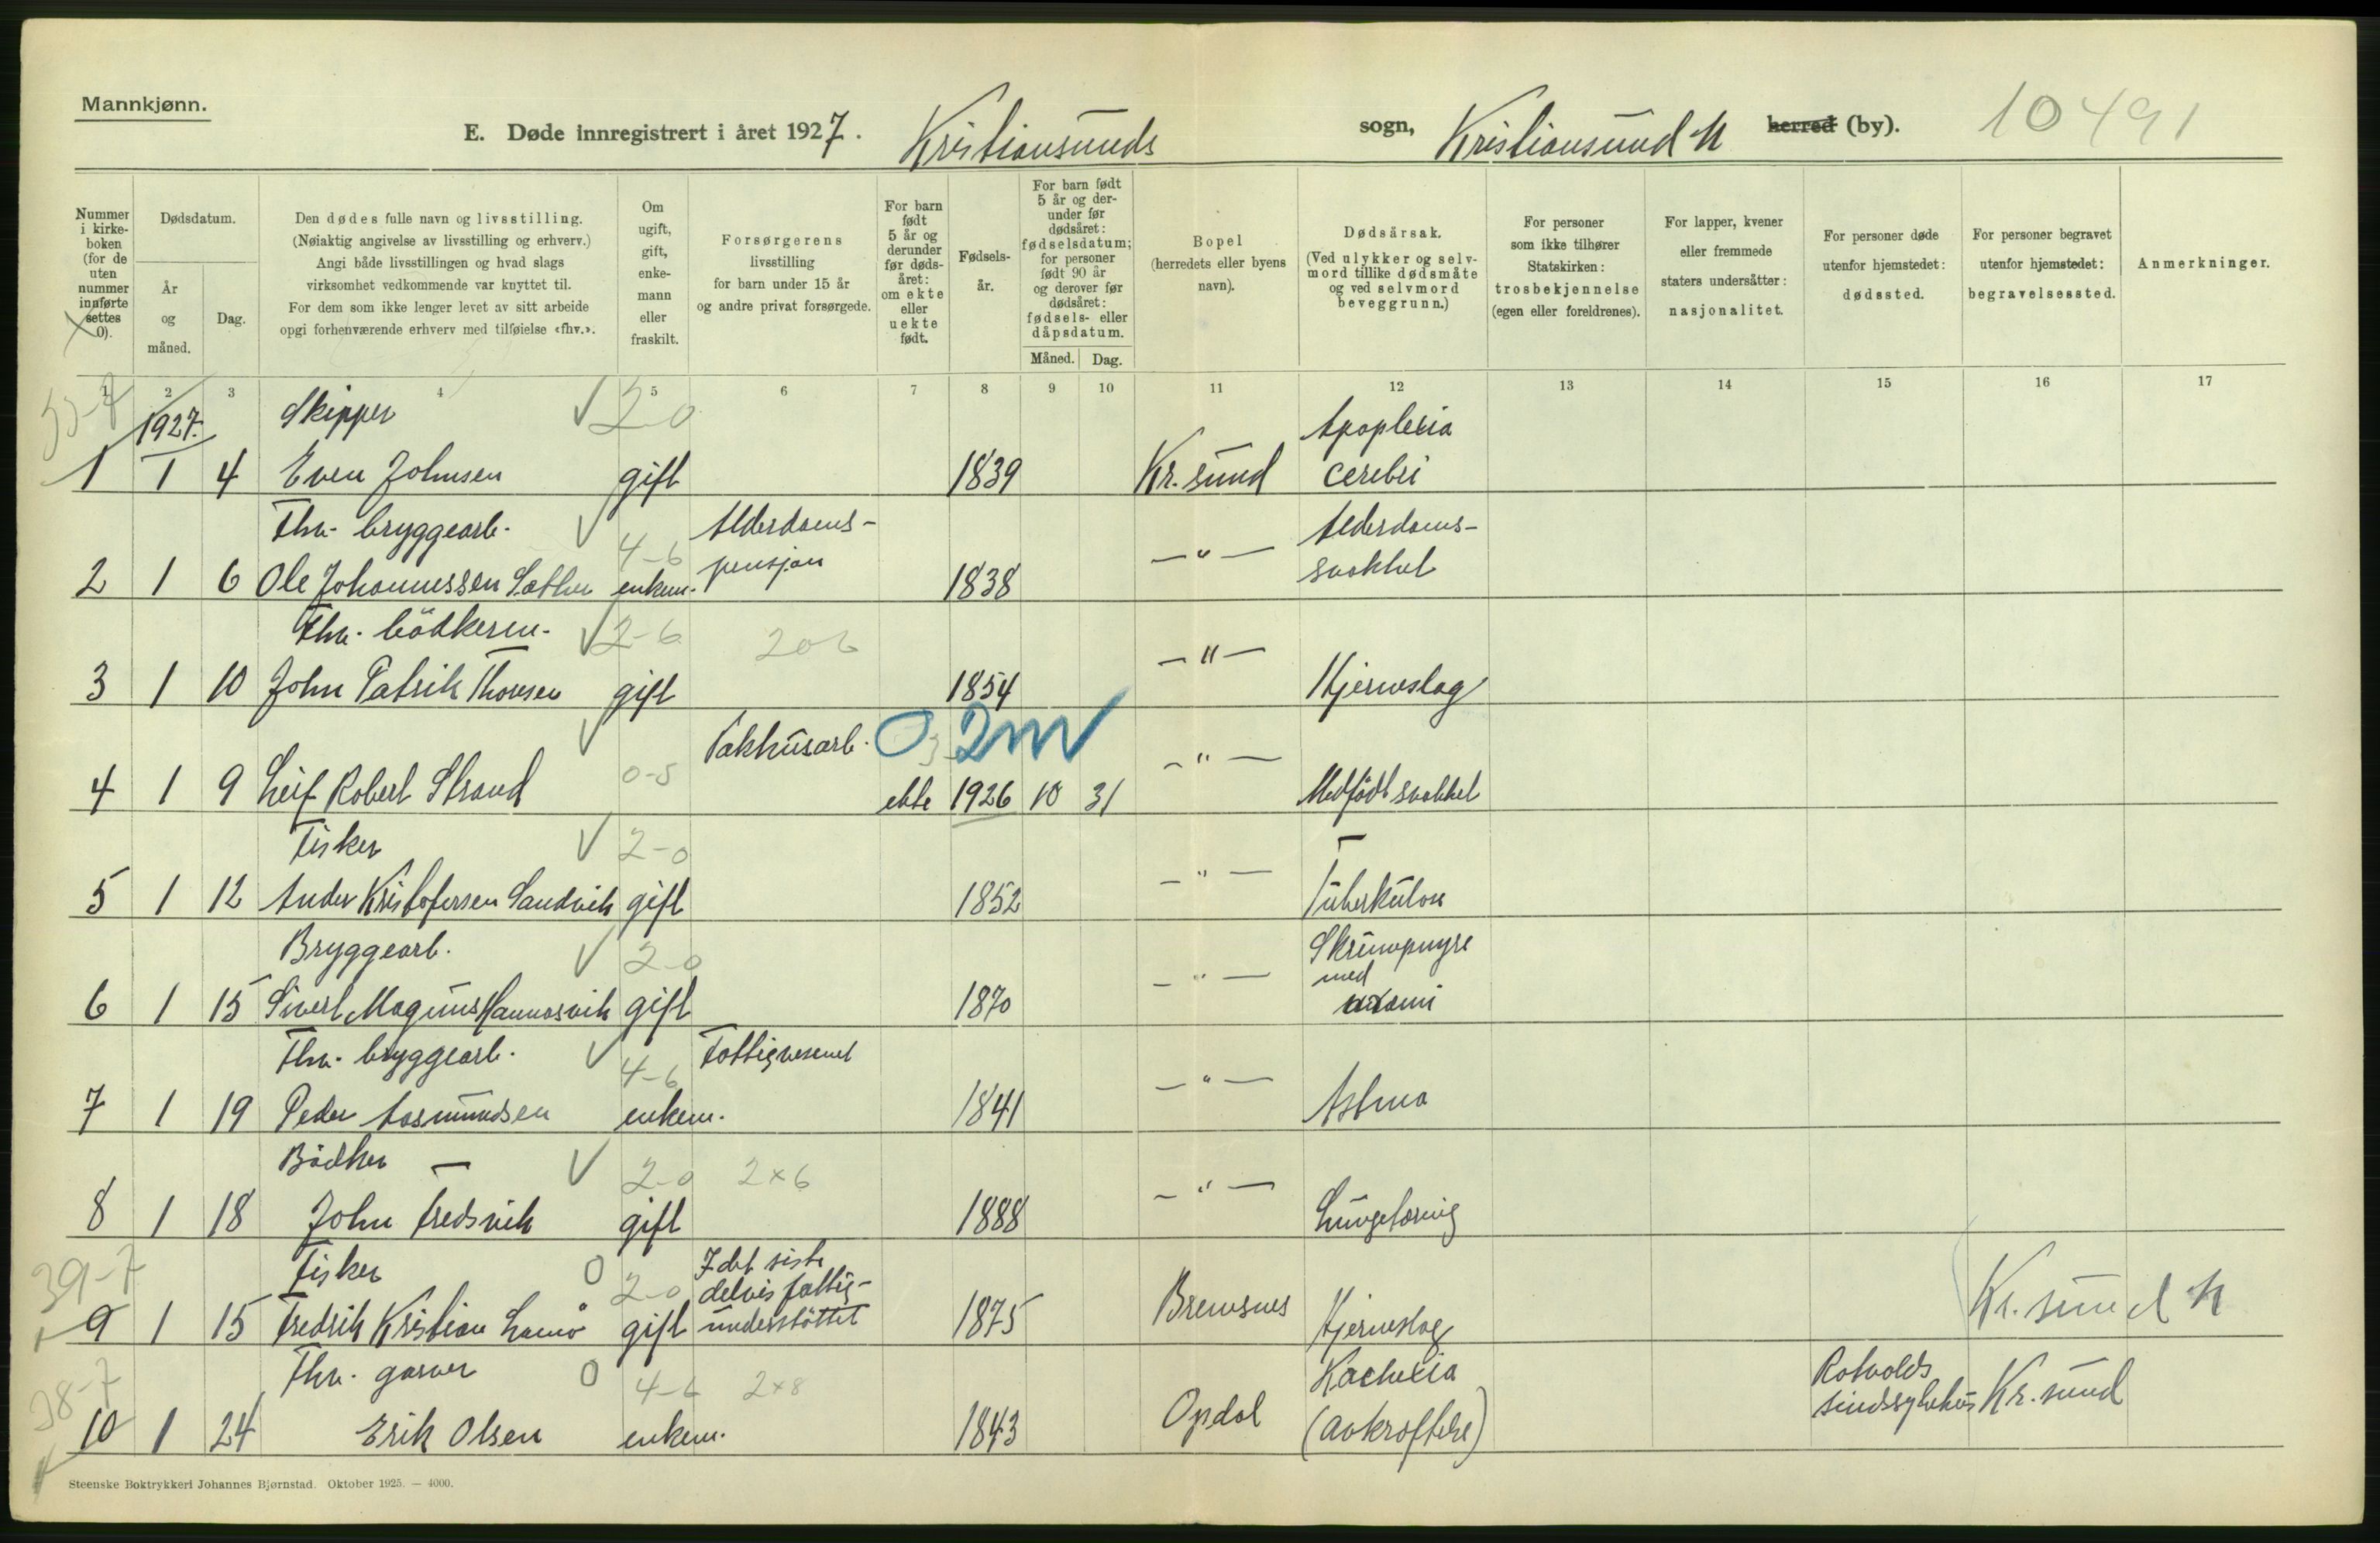 Mannkjønn.
E. Døde innregistrert i året 1927. Kristiansunds sogn, Kristiansund N herred (by). 10491
Nummer i kirkeboken (for de uten nummer innførte settes 0).
Dødsdatum.
År og måned.
Dag.
Den dødes fulle navn og livsstilling.
(Nøiaktig angivelse av livsstilling og erhverv.)
Angi både livsstillingen og hvad slags
virksomhet vedkommende var knyttet til.
For dem som ikke lenger levet av sitt arbeide
opgi forhenværende erhverv med tilføielse «fhv.».
Om ugift, gift, enkemann eller fraskilt.
Forsørgerens
livsstilling
for barn under 15 år
og andre privat forsørgede.
For barn født 5 år og derunder før dødsåret: om ekte eller uekte født.
Fødselsår.
For barn født 5 år og derunder før dødsåret: fødselsdatum; for personer født 90 år og derover før dødsåret: fødsels- eller dåpsdatum.
Måned. Dag.
Bopel
(herredets eller byens navn).
Dødsårsak.
(Ved ulykker og selvmord tillike dødsmåte og ved selvmord beveggrunn.)
For personer som ikke tilhører Statskirken: trosbekjennelse (egen eller foreldrenes).
For lapper, kvener eller fremmede staters undersåtter: nasjonalitet.
For personer døde utenfor hjemstedet: dødssted.
For personer begravet utenfor hjemstedet: begravelsessted.
Anmerkninger.
1 2 3 4 5 6 7 8 9 10 11 12 13 14 15 16 17
1927. Skipper 2-0 Apoplexia
1 1 4 Even Johnsen gift 1839 Kr. sund cerebri
Fhv. bryggearb. 4-6 Alderdoms- —"— Alderdoms-
2 1 6 Ole Johannessen Sæther enkem. pensjon 1838 svakhet
Fhv. bödkersv. 2-6 206 —"—
3 1 10 John Patrik Thorsen gift 1854 Hjerneslag
Pakhusarb. 0 2m —"—
4 1 9 Leif Robert Strand 0-5 ekte 1926 10 31 Medfödt svakhet
Fisker 2-0 —"—
5 1 12 Anders Kristofersen Sandvik gift 1852 Tuberkulose
Bryggearb. 2-0 —"— Skrumpnyre
med
6 1 15 Sivert Magnus Hannasvik gift 1870 uræmi
Fhv. bryggearb. 4-6 Fattigvesenet —"—
7 1 19 Peder Aasmundsen enkem. 1841 Astma
Bödker 2-0 2x6 —"—
8 1 18 John Fredsvik gift 1888 Lungetæring
39-7 Fisker 0 2-0 I det siste delvis fattig-
9 1 15 Fredrik Kristian gift understöttet 1875 Bremsnes Hjerneslag Kr. sund N
38-7 Fhv. garver 0 4-6 2x8 Kachexia Rotvolds
10 1 24 Erik Olsen enkem. 1843 Opdal (avkræftelse) sindssykehus Kr. sund
Steenske Boktrykkeri Johannes Bjørnstad. Oktober 1925. — 4000.